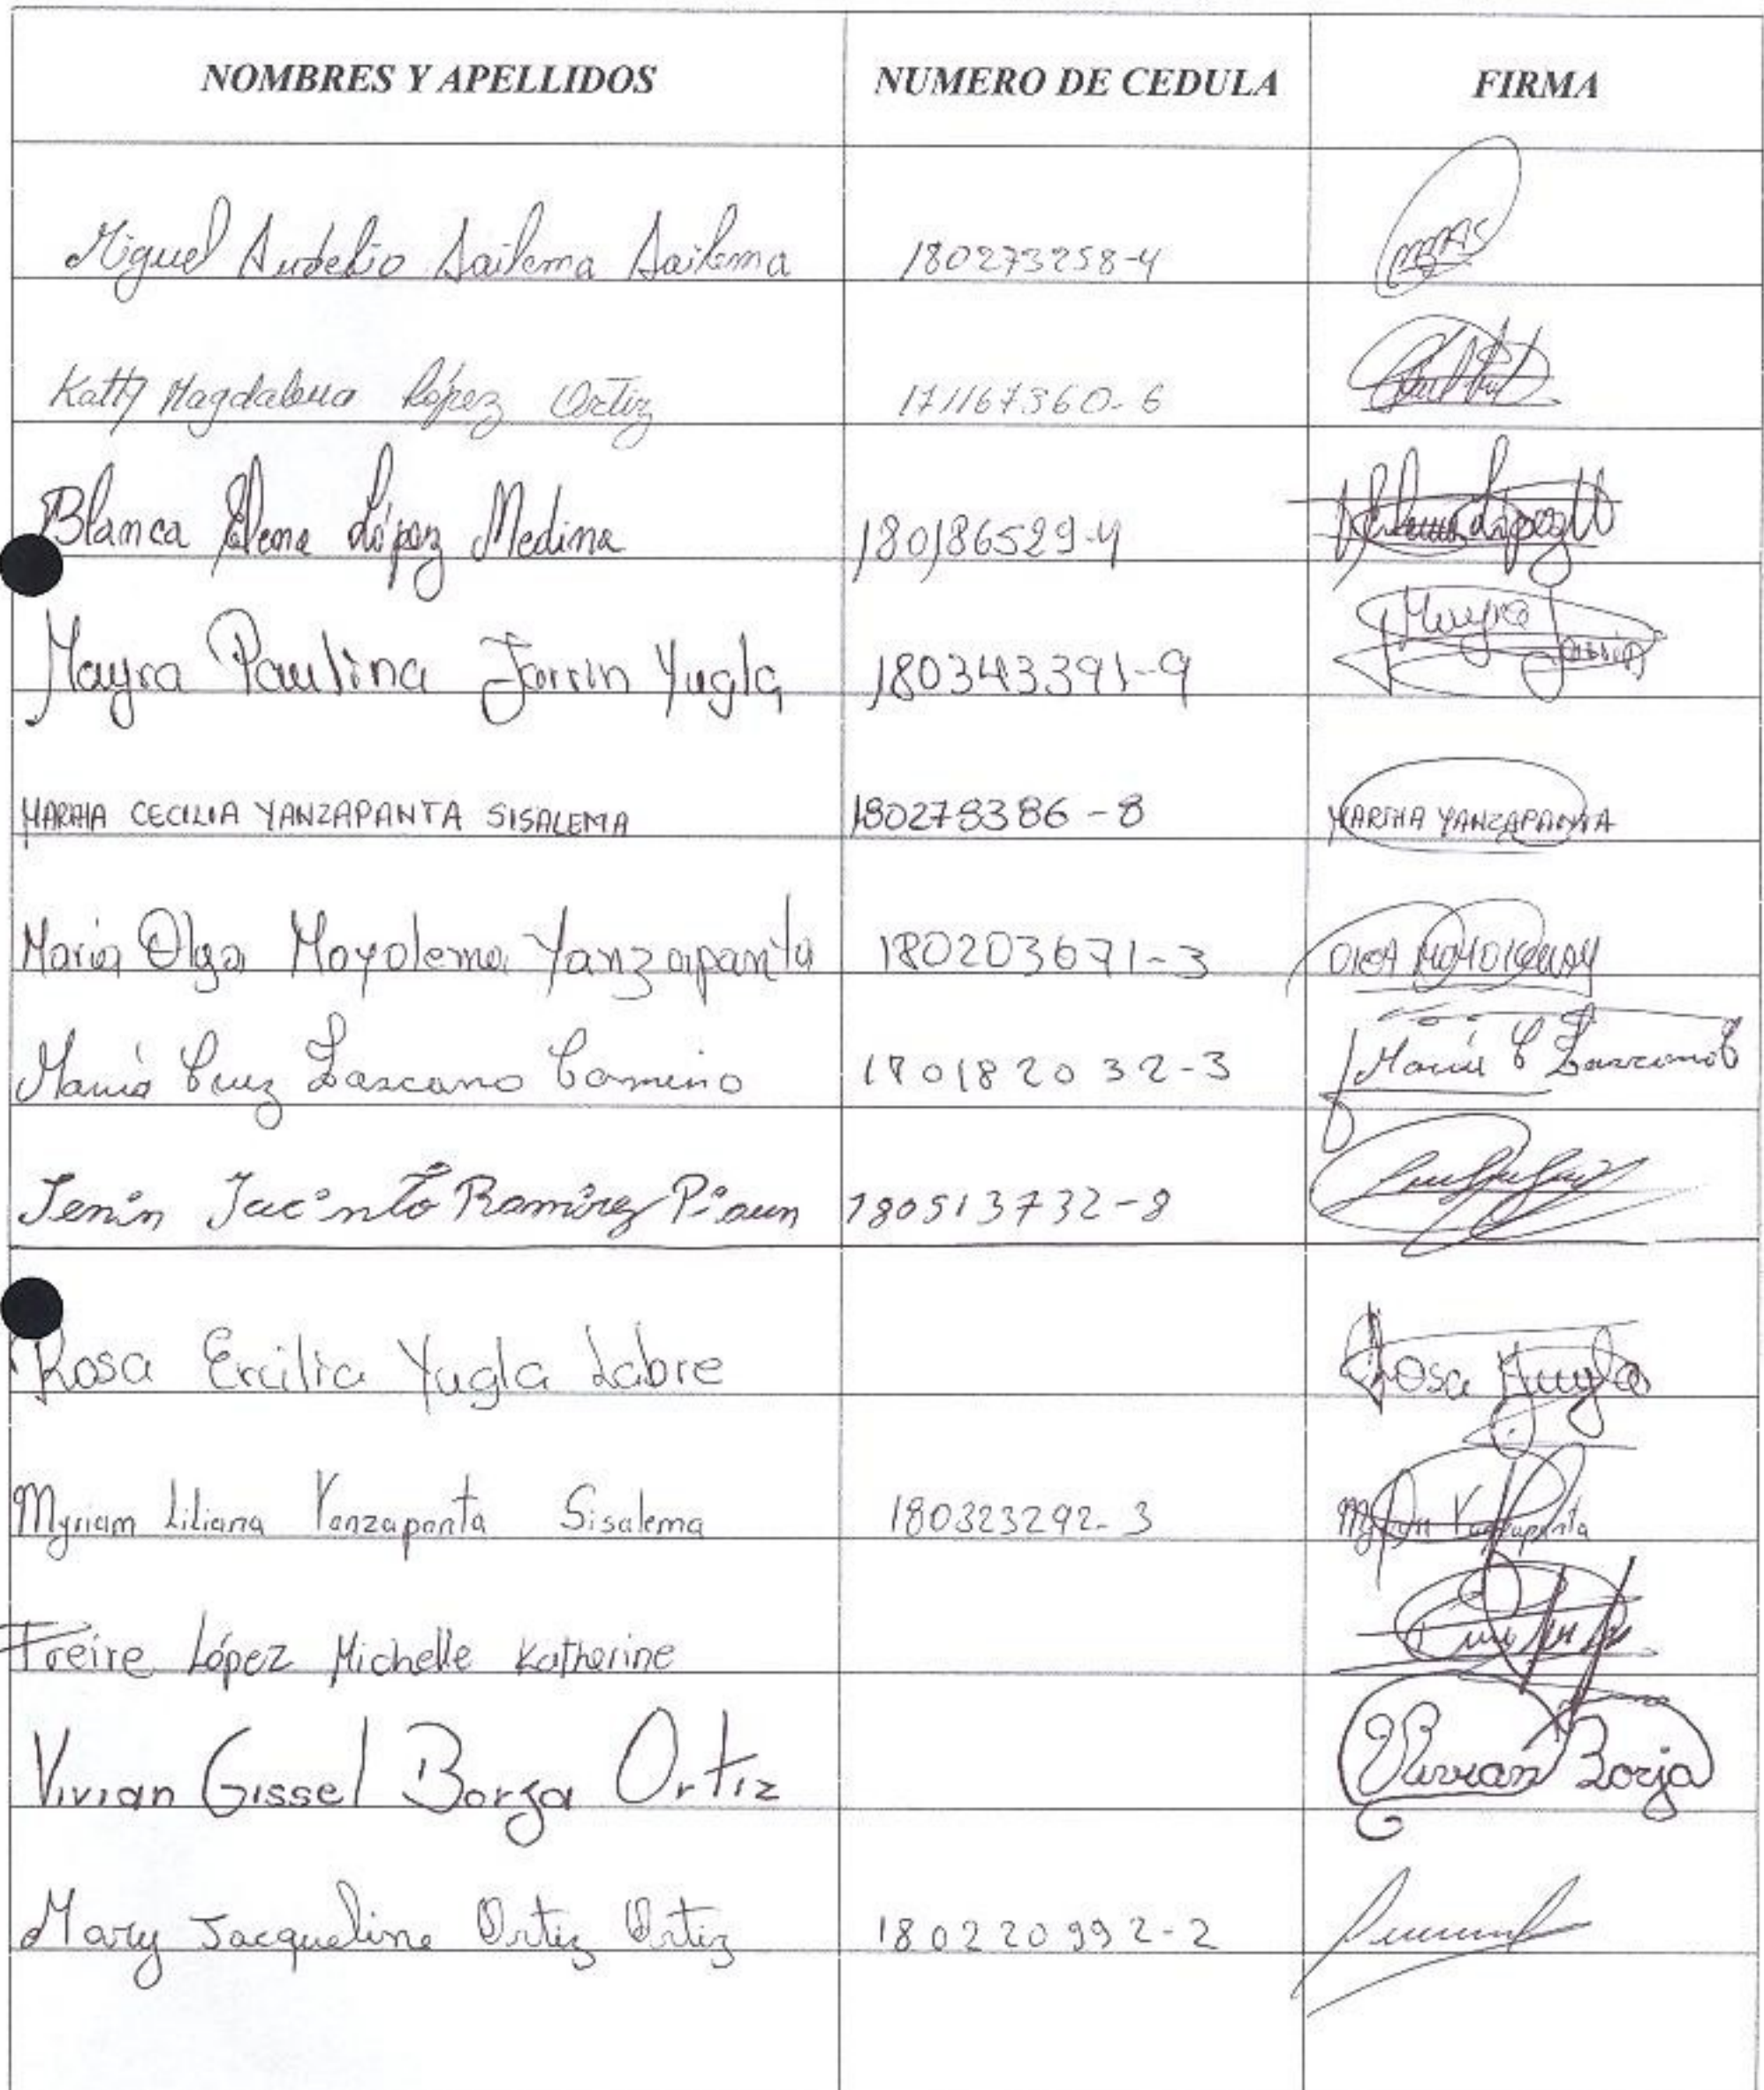 NOMBRES Y APELLIDOS NUMERO DE CEDULA FIRMA
Miguel Aurelio Sailema Sailema 180273258-4
Katty Magdalena López Ortiz 171167360-6
Blanca Elena López Medina 180186529-4
Mayra Paulina Jarrin Yugla 180343391-9 Mayra Jarrin
MARTHA CECILIA YANZAPANTA SISALEMA 180278386-8 MARTHA YANZAPANTA
Maria Olga Moyolema Yanzapanta 180203671-3 OLGA
Maria Cruz Lascano Camino 180182032-3 Maria C Lascano C
Jacinto Ramirez 180513732-8
Rosa Ercilia Yugla Labre Rosa Yugla
Myriam Liliana Yanzapanta Sisalema 180323292-3 Yanzapanta
Freire López Michelle Katherine
Vivian Gissel Borja Ortiz Vivian Borja
Mary Jacqueline Ortiz Ortiz 180220992-2